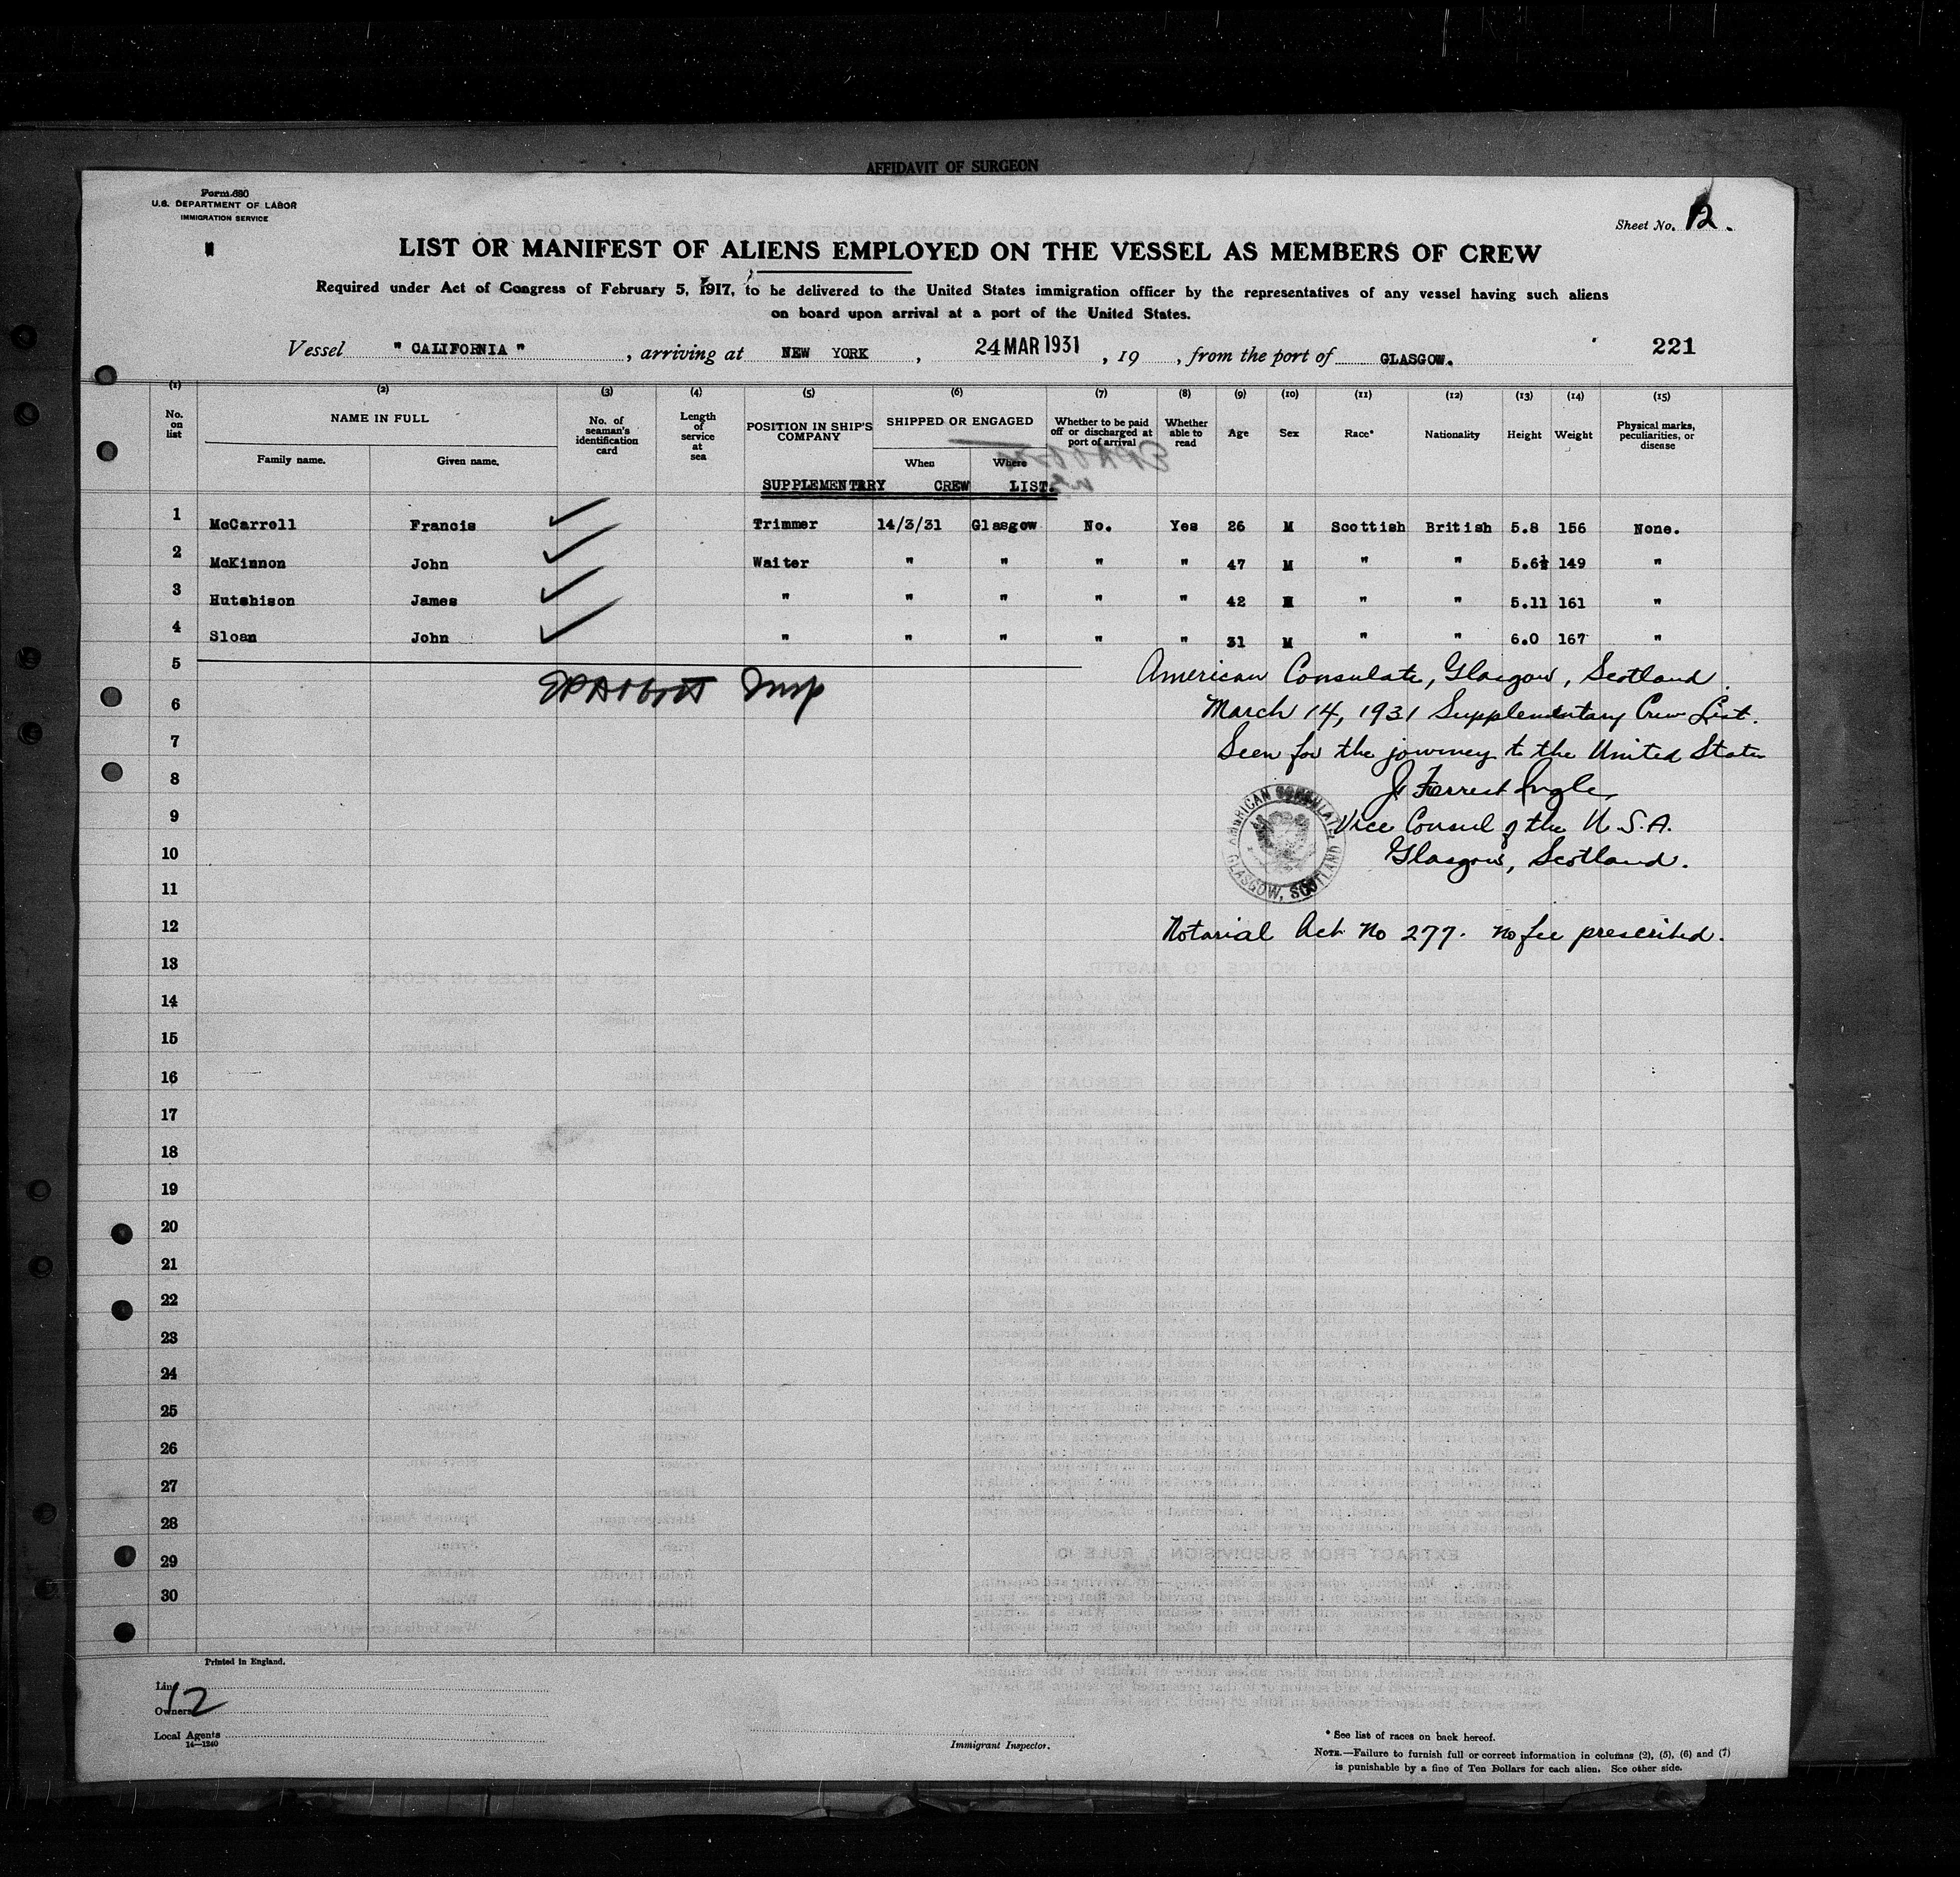 AFFIDAVIT OF SURGEON
Form 680
U.S. DEPARTMENT OF LABOR
IMMIGRATION SERVICE
Sheet No. 12.
LIST OR MANIFEST OF ALIENS EMPLOYED ON THE VESSEL AS MEMBERS OF CREW
Required under Act of Congress of February 5, 1917, to be delivered to the United States immigration officer by the representatives of any vessel having such aliens
on board upon arrival at a port of the United States.
Vessel " CALIFORNIA " , arriving at NEW YORK , 24 MAR 1931 , 19 , from the port of GLASGOW. 221
(1) (2) (3) (4) (5) (6) (7) (8) (9) (10) (11) (12) (13) (14) (15)
No. on list NAME IN FULL Family name. Given name. No. of seaman's identification card Length of service at sea POSITION IN SHIP'S COMPANY SHIPPED OR ENGAGED When Where Whether to be paid off or discharged at port of arrival Whether able to read Age Sex Race* Nationality Height Weight Physical marks, peculiarities, or disease
SUPPLEMENTARY CREW LIST.
1 McCarrell Francis Trimmer 14/3/31 Glasgow No. Yes 26 M Scottish British 5.8 156 None.
2 McKinnon John Waiter " " " " 47 M " " 5.6½ 149 "
3 Hutchison James " " " " " 42 M " " 5.11 161 "
4 Sloan John " " " " " 31 M " " 6.0 167 "
5
American Consulate, Glasgow, Scotland.
EPAbbott Insp
6
March 14, 1931 Supplementary Crew List.
7
Seen for the journey to the United States
8
J Forrest Ingle
9
Vice Consul of the U.S.A.
AMERICAN CONSULATE
GLASGOW, SCOTLAND
10
Glasgow, Scotland.
11
12
Notarial Act No 277. no fee prescribed.
13
14
15
16
17
18
19
20
21
22
23
24
25
26
27
28
29
30
Printed in England.
Line
12
Owners
Local Agents
14—1240
Immigrant Inspector.
* See list of races on back hereof.
NOTE.—Failure to furnish full or correct information in columns (2), (5), (6) and (7)
is punishable by a fine of Ten Dollars for each alien. See other side.